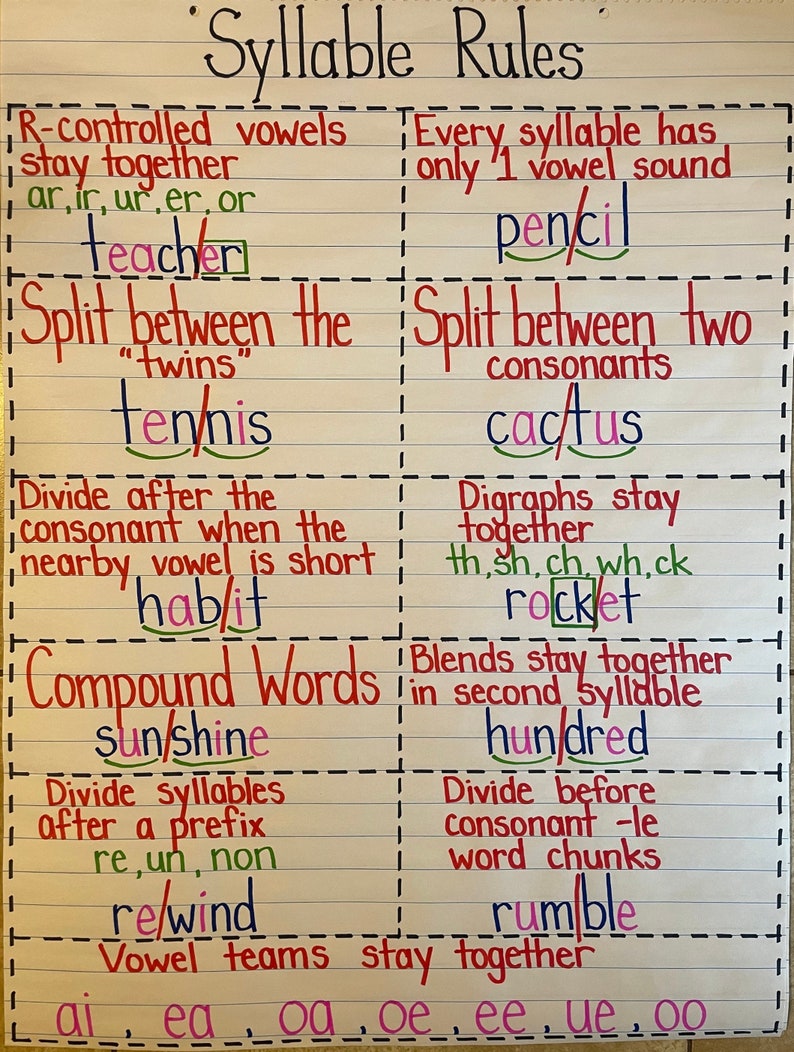 Syllable Rules
R-controlled vowels
stay together
ar, ir, ur, er, or
teach/er
Every syllable has
only 1 vowel sound
pen/cil
Split between the
"twins"
ten/nis
Split between two
consonants
cac/tus
Divide after the
consonant when the
nearby vowel is short
hab/it
Digraphs stay
together
th, sh, ch, wh, ck
rock/et
Compound Words
sun/shine
Blends stay together
in second syllable
hun/dred
Divide syllables
after a prefix
re, un, non
re/wind
Divide before
consonant -le
word chunks
rum/ble
Vowel teams stay together
ai, ea, oa, oe, ee, ue, oo